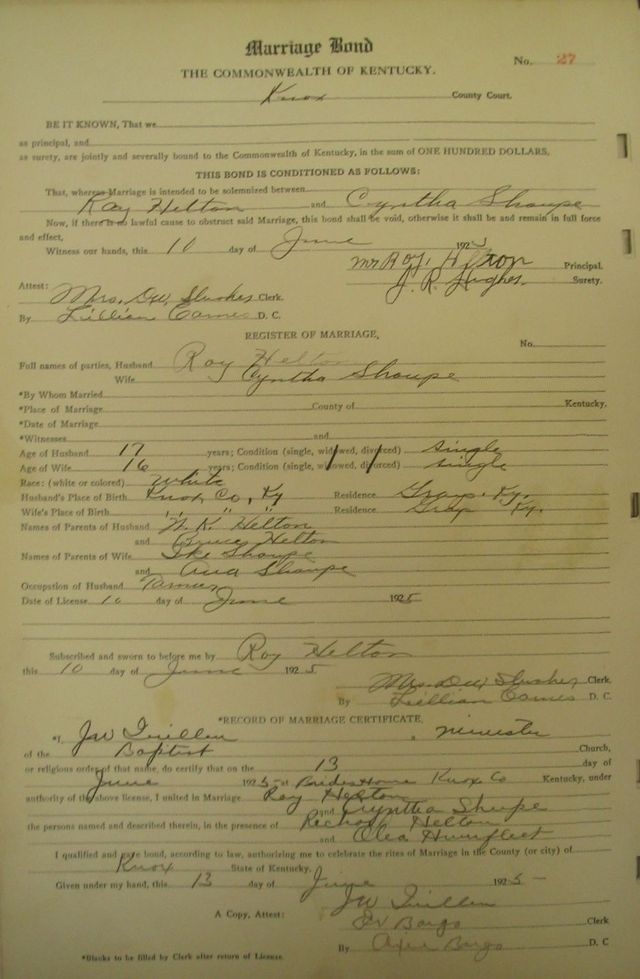 Marriage Bond
No. 27
THE COMMONWEALTH OF KENTUCKY.
Knox County Court.
BE IT KNOWN, That we
as principal, and
as surety, are jointly and severally bound to the Commonwealth of Kentucky, in the sum of ONE HUNDRED DOLLARS.
THIS BOND IS CONDITIONED AS FOLLOWS:
That, whereas Marriage is intended to be solemnized between
Ray Helton and Cyntha Shoupe
Now, if there is no lawful cause to obstruct said Marriage, this bond shall be void, otherwise it shall be and remain in full force
and effect,
Witness our hands, this 10 day of June 1925
Mr Roy Helton Principal.
J. R. Hughes. Surety.
Attest:
Mrs. DW Slusher Clerk.
By Lillian Eames D. C.
REGISTER OF MARRIAGE,
No.
Full names of parties, Husband Roy Helton
Wife Cyntha Shoupe
*By Whom Married
*Place of Marriage County of Kentucky.
*Date of Marriage
*Witnesses and
Age of Husband 17 years; Condition (single, widowed, divorced) single
Age of Wife 16 years; Condition (single, widowed, divorced) single
Race: (white or colored) White
Husband's Place of Birth Knox Co, Ky Residence Grays. Ky.
Wife's Place of Birth " " " Residence Gray Ky.
Names of Parents of Husband Helton
and Helton
Names of Parents of Wife Ike Shoupe
and Shoupe
Occupation of Husband
Date of License 10 day of June 1925
Subscribed and sworn to before me by Roy Helton
this 10 day of June 1925.
Mrs DW Slusher Clerk.
By Lillian Eames D. C.
*RECORD OF MARRIAGE CERTIFICATE,
*I, JW a minister
of the Baptist Church,
or religious order of that name, do certify that on the 13 day of
June 1925 at Brides Home Knox Co Kentucky, under
authority of the above license, I united in Marriage Roy Helton
and Cyntha Shoupe
the persons named and described therein, in the presence of Helton
and
I qualified and gave bond, according to law, authorizing me to celebrate the rites of Marriage in the County (or city) of
Knox State of Kentucky.
Given under my hand, this 13 day of June 1925
JW
A Copy, Attest: Clerk
By D. C
*Blanks to be filled by Clerk after return of License